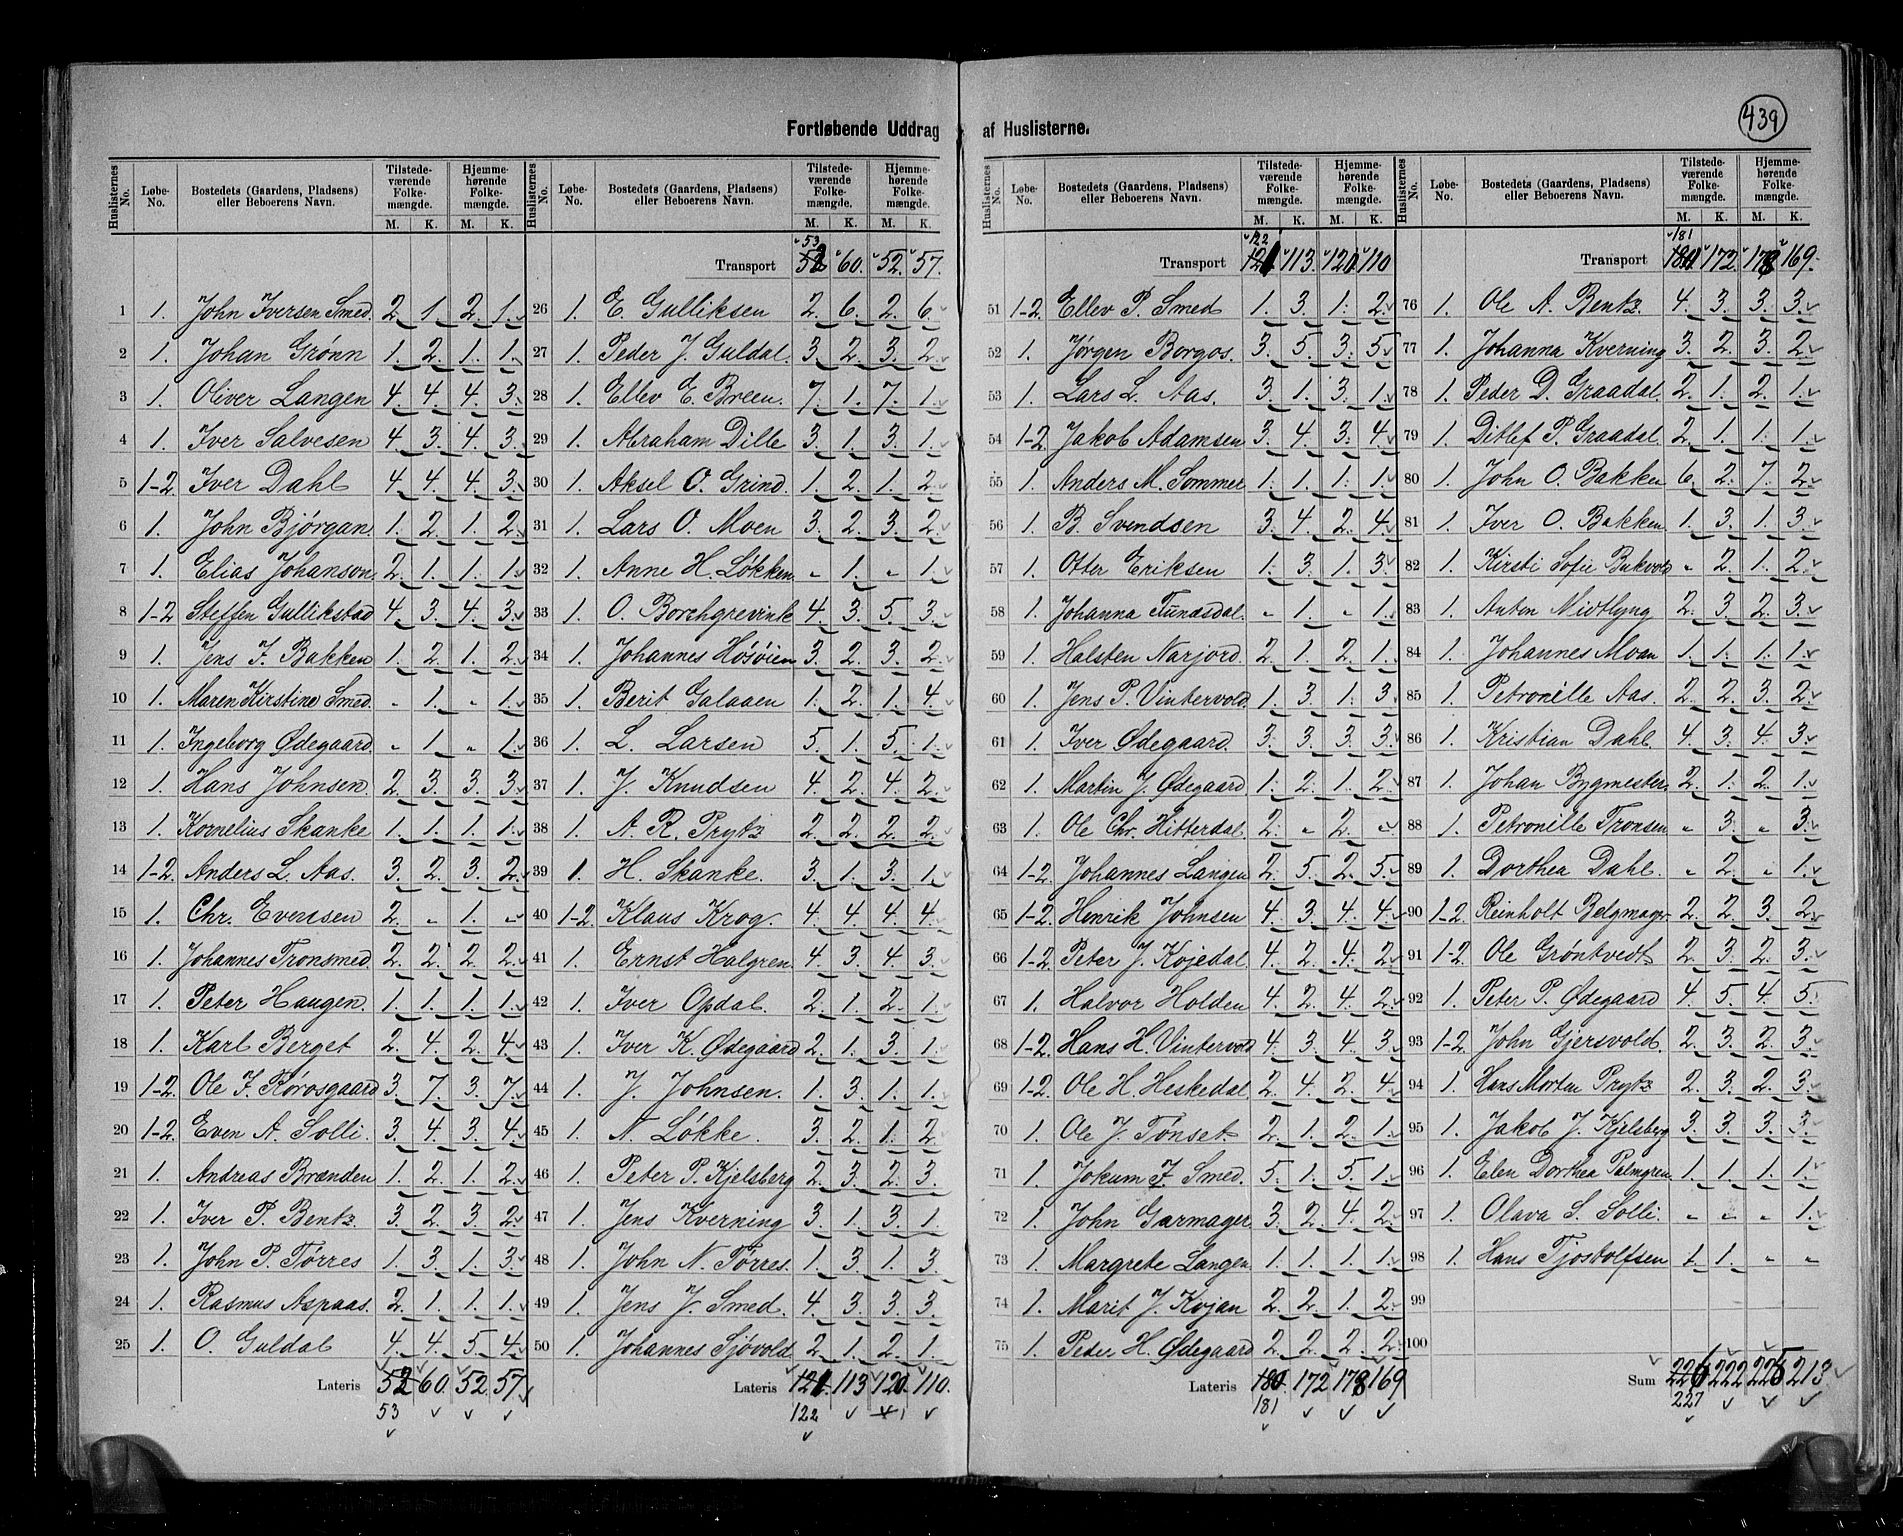 439
Fortløbende Uddrag af Huslisterne.
Huslisternes No. Løbe-No. Bostedets (Gaardens, Pladsens) eller Beboerens Navn. Tilstedeværende Folkemængde. M. K. Hjemmehørende Folkemængde. M. K.
1 1. John Iversen Smed. 2. 1. 2. 1.
2 1. Johan Grønn 1. 2. 1. 1.
3 1. Oliver Langen 4. 4. 4. 3.
4 1. Iver Salvesen 4. 3. 4. 3.
5 1-2. Iver Dahl 4. 4. 4. 3.
6 1. John Bjørgan. 1. 2. 1. 2.
7 1. Elias Johanson. 2. 1. 1. 1.
8 1-2 Steffen Gullikstad 4. 3. 4. 3.
9 1. Jens J. Bakken 1. 2. 1. 2.
10 1. Maren Kirstine Smed. „ 1. „ 1.
11 1. Ingeborg Ødegaard. „ 1. „ 1.
12 1. Hans Johnsen. 2. 3. 3. 3.
13 1. Kornelius Skanke 1. 1. 1. 1.
14 1-2. Anders L. Aas. 3. 2. 3. 2.
15 1. Chr. Evensen 2. „ 1. „
16 1. Johannes Tronsmed. 2. 2. 2. 2.
17 1. Peter Haugen 1. 1. 1. 1.
18 1. Karl Berget 2. 4. 2. 4.
19 1-2 Ole J. Rørosgaard 3. 7. 3. 7.
20 1-2. Even A. Solli. 3. 4. 3. 4.
21 1. Andreas Brænden 1. 2. 1. 2.
22 1. Iver P. Bentz. 3. 2. 3. 2.
23 1. John P. Tørres 1. 3. 1. 3.
24 1. Rasmus Aspaas. 2. 1. 1. 1.
25 1. O. Guldal 4. 4. 5. 4.
Lateris 52 60. 52. 57.
53
Huslisternes No. Løbe-No. Bostedets (Gaardens, Pladsens) eller Beboerens Navn. Tilstedeværende Folkemængde. M. K. Hjemmehørende Folkemængde. M. K.
53
Transport 52 60. 52. 57.
26 1. E. Gulliksen 2. 6. 2. 6.
27 1. Peder J. Guldal. 3. 2. 3. 2.
28 1. Ellev E. Breen. 7. 1. 7. 1.
29 1. Abraham Dille 3. 1. 3. 1.
30 1. Aksel O. Grind. 1. 2. 1. 2.
31 1. Lars O. Moen 3. 2. 3. 2.
32 1. Anne H. Løkken „ 1. „ 1.
33 1. O. Borchgrevink 4. 3. 5. 3.
34 1. Johannes Høsøien 3. 2. 3. 2.
35 1. Berit Galaaen 1. 2. 1. 4.
36 1. L. Larsen 5. 1. 5. 1.
37 1. J. Knudsen 4. 2. 4. 2.
38 1. A. R. Prytz 2. 2. 2. 2.
39 1. H. Skanke. 3. 1. 3. 1.
40 1-2. Klaus Krog. 4. 4. 4. 4.
41 1. Ernst Halgren. 4. 3. 4. 3.
42 1. Iver Opdal. 2. 1. 2. 1.
43 1. Iver K. Ødegaard 2. 1. 3. 1.
44 1. J. Johnsen. 1. 3. 1. 1.
45 1. N. Løkke. 3. 2. 1. 2.
46 1. Peter P. Kjelsberg 2. 3. 2. 3.
47 1. Jens Kverning 3. 1. 3. 1.
48 1. John N. Tørres. 1. 3. 1. 3.
49 1. Jens J. Smed. 4. 3. 3. 3.
50 1. Johannes Sjøvold 2. 1. 2. 1.
Lateris 121. 113 120. 110.
122
Huslisternes No. Løbe-No. Bostedets (Gaardens, Pladsens) eller Beboerens Navn. Tilstedeværende Folkemængde. M. K. Hjemmehørende Folkemængde. M. K.
122
Transport 121 113. 120 110
51 1-2. Ellev P. Smed 1. 3. 1. 2.
52 1. Jørgen Borgos. 3. 5. 3. 5.
53 1. Lars L. Aas. 3. 1. 3. 1.
54 1-2. Jakob Adamsen 3. 4. 3. 4.
55 1. Anders M. Sommer 1. 1. 1. 1.
56 1. B. Svendsen 3. 4. 2. 4.
57 1. Otter Eriksen 1. 3. 1. 3.
58 1. Johanna Tundsdal. „ 1. „ 1.
59 1. Halsten Narjord. 2. 1. 2. 1.
60 1. Jens P. Vintervold 1. 3. 1. 3.
61 1. Iver Ødegaard. 3. 3. 3. 3.
62 1. Martin J. Ødegaard 1. 2. 1. 2.
63 1. Ole Chr. Hitterdal 2. „ 2. „
64 1-2. Johannes Langen 2. 5. 2. 5.
65 1-2. Henrik Johnsen 4. 3. 4. 4.
66 1-2. Peter J. Kojedal. 4. 2. 4. 2.
67 1. Halvor Holden 4. 2. 4. 2.
68 1-2. Hans H. Vintervold 4. 3. 4. 3.
69 1-2. Ole H. Heskedal 2. 4. 2. 4.
70 1. Ole J. Tønset. 2. 1. 2. 1.
71 1. Jokum J. Smed. 5. 1. 5. 1.
72 1. John Garmager 3. 2. 4. 2.
73 1. Margrete Langen 1. 1. 1. 1.
74 1. Marit J. Kojan 2. 2. 1. 2.
75 1. Peder H. Ødegaard 2. 2. 2. 2.
Lateris 180. 172 178 169
181
Huslisternes No. Løbe-No. Bostedets (Gaardens, Pladsens) eller Beboerens Navn. Tilstedeværende Folkemængde. M. K. Hjemmehørende Folkemængde. M. K.
181
Transport 180 172. 178 169.
76 1. Ole A. Bentz. 4. 3. 3. 3.
77 1. Johanna Kverning 3. 2. 3. 2.
78 1. Peder D. Graadal. 2. 1. 2. 1.
79 1. Ditlef P. Graadal. 2. 1. 1. 1.
80 1. John O. Bakken 6. 2. 7. 2.
81 1. Iver O. Bakken. 1. 3. 1. 3.
82 1. Kirsti Sofie Bukvold „ 2. 1. 2.
83 1. Anton Midtlyng 2. 3. 2. 3.
84 1. Johannes Moan 1. 1. 1. 1.
85 1. Petronille Aas. 2. 2. 3. 2.
86 1. Kristian Dahl. 4. 3. 4. 3.
87 1. Johan Bygmester 2. 1. 2. 1.
88 1. Petronille Tronsen „ 3. „ 3.
89 1. Dorthea Dahl. „ 2. „ 1.
90 1-2. Reinholt Belgmager 2. 2. 3. 2.
91 1-2. Ole Grøntvedt 2. 3. 2. 3.
92 1. Peter P. Ødegaard 4. 5. 4. 5.
93 1-2. John Gjersvold. 2. 3. 2. 3.
94 1. Hans Morten Prytz 2. 3. 2. 3.
95 1. Jakob J. Kjelsberg 3. 3. 3. 3.
96 1. Elen Dorthea Palmgren. 1. 1. 1. 1.
97 1. Olava S. Solli. „ „ „ 1.
98 1. Hans Tjostolfsen 1. 1. „ „
99
100
Sum 226 222 225 213.
227